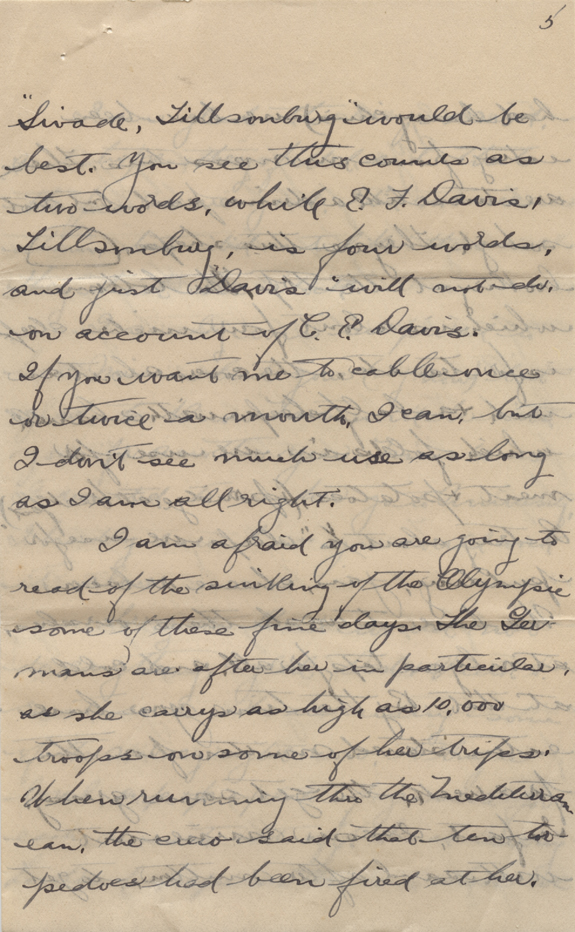 5
"Sivade, Tillsonburg" would be
best. You see this counts as
two words, while E. F. Davis,
Tillsonburg, is four words,
and just "Davis" will not do,
on account of C. E. Davis.
If you want me to cable once
or twice a month, I can, but
I don't see much use as long
as I am all right.
I am afraid you are going to
read of the sinking of the Olympic
some of these fine days. The Ger-
mans are after her in particular,
as she carrys as high as 10,000
troops on some of her trips.
When running thro the Mediterran-
ean, the crew said that ten tor-
pedoes had been fired at her.